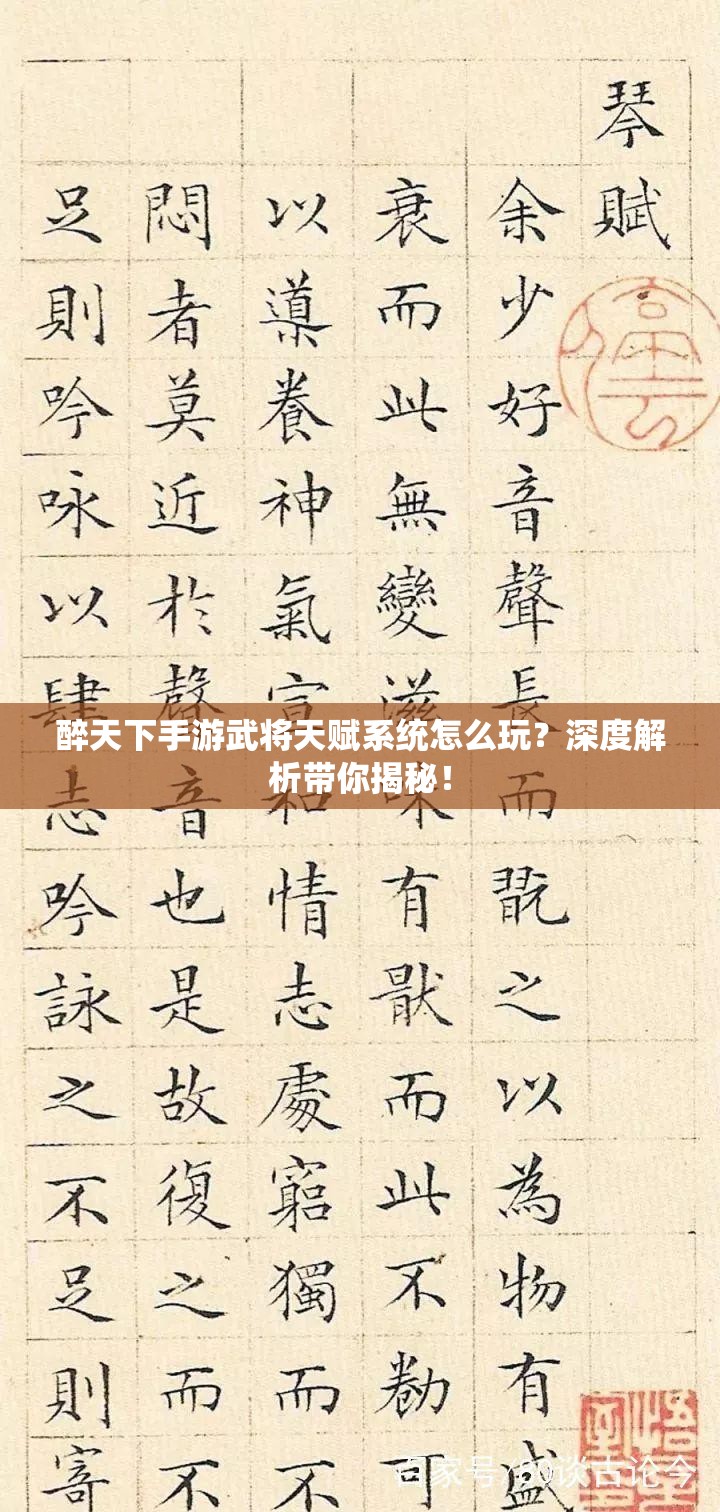 琴賦
余少好音聲長而翫之以為物有盛
衰而此無變滋味有猒而此不勌可
以導養神氣宣和情志處窮獨而不
悶者莫近於聲音也是故復之而不
足則吟咏以肆志吟詠之不足則寄
醉天下手游武将天赋系统怎么玩？深度解
析带你揭秘！
百家号 谈古论今